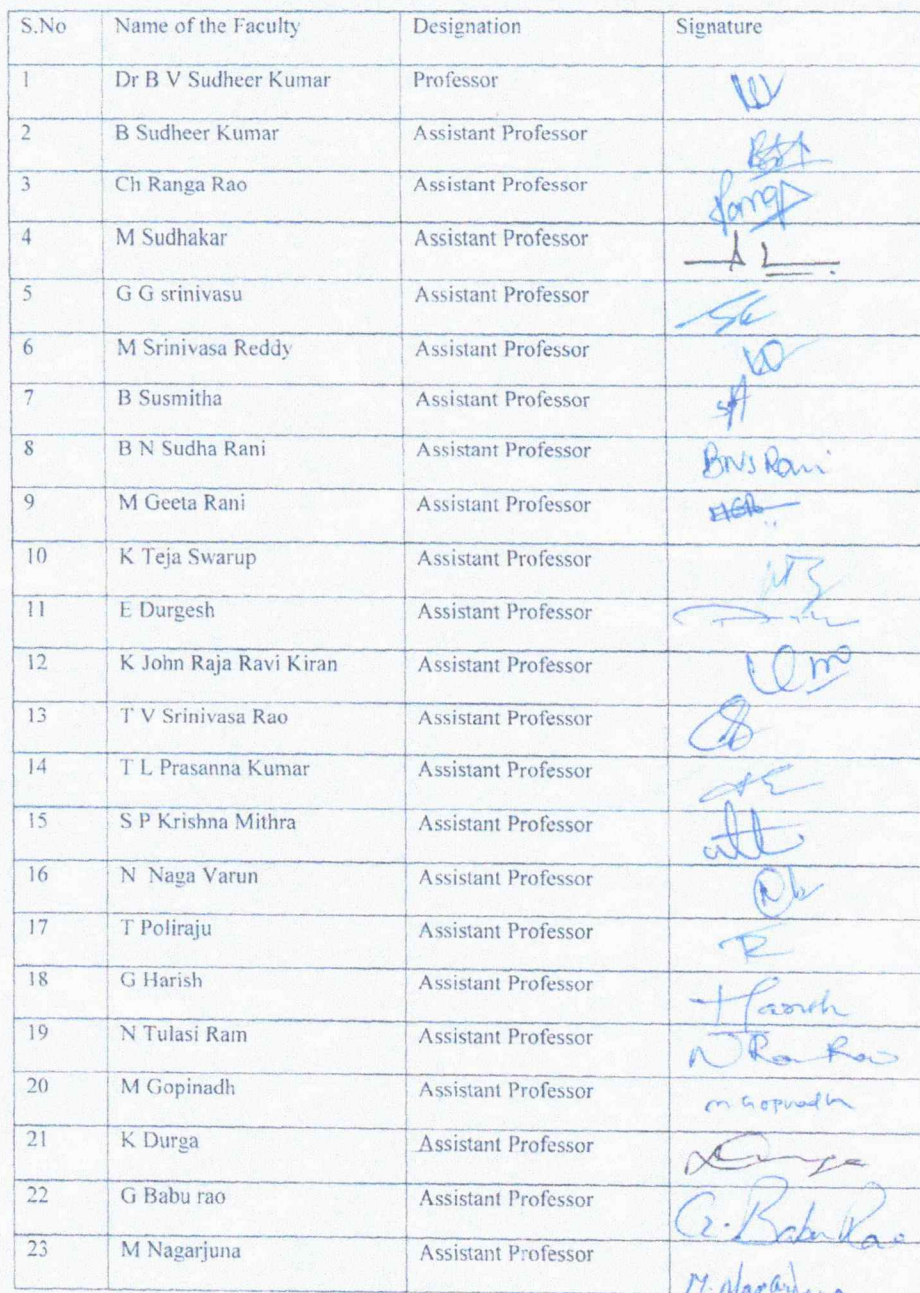 S.No Name of the Faculty Designation Signature
1 Dr B V Sudheer Kumar Professor
2 B Sudheer Kumar Assistant Professor
3 Ch Ranga Rao Assistant Professor
4 M Sudhakar Assistant Professor
5 G G srinivasu Assistant Professor
6 M Srinivasa Reddy Assistant Professor
7 B Susmitha Assistant Professor
8 B N Sudha Rani Assistant Professor BNS Rani
9 M Geeta Rani Assistant Professor
10 K Teja Swarup Assistant Professor
11 E Durgesh Assistant Professor
12 K John Raja Ravi Kiran Assistant Professor
13 T V Srinivasa Rao Assistant Professor
14 T L Prasanna Kumar Assistant Professor
15 S P Krishna Mithra Assistant Professor
16 N Naga Varun Assistant Professor
17 T Poliraju Assistant Professor
18 G Harish Assistant Professor Harish
19 N Tulasi Ram Assistant Professor
20 M Gopinadh Assistant Professor M Gopinadh
21 K Durga Assistant Professor Durga
22 G Babu rao Assistant Professor G. Babu Rao
23 M Nagarjuna Assistant Professor M. Nagarjuna